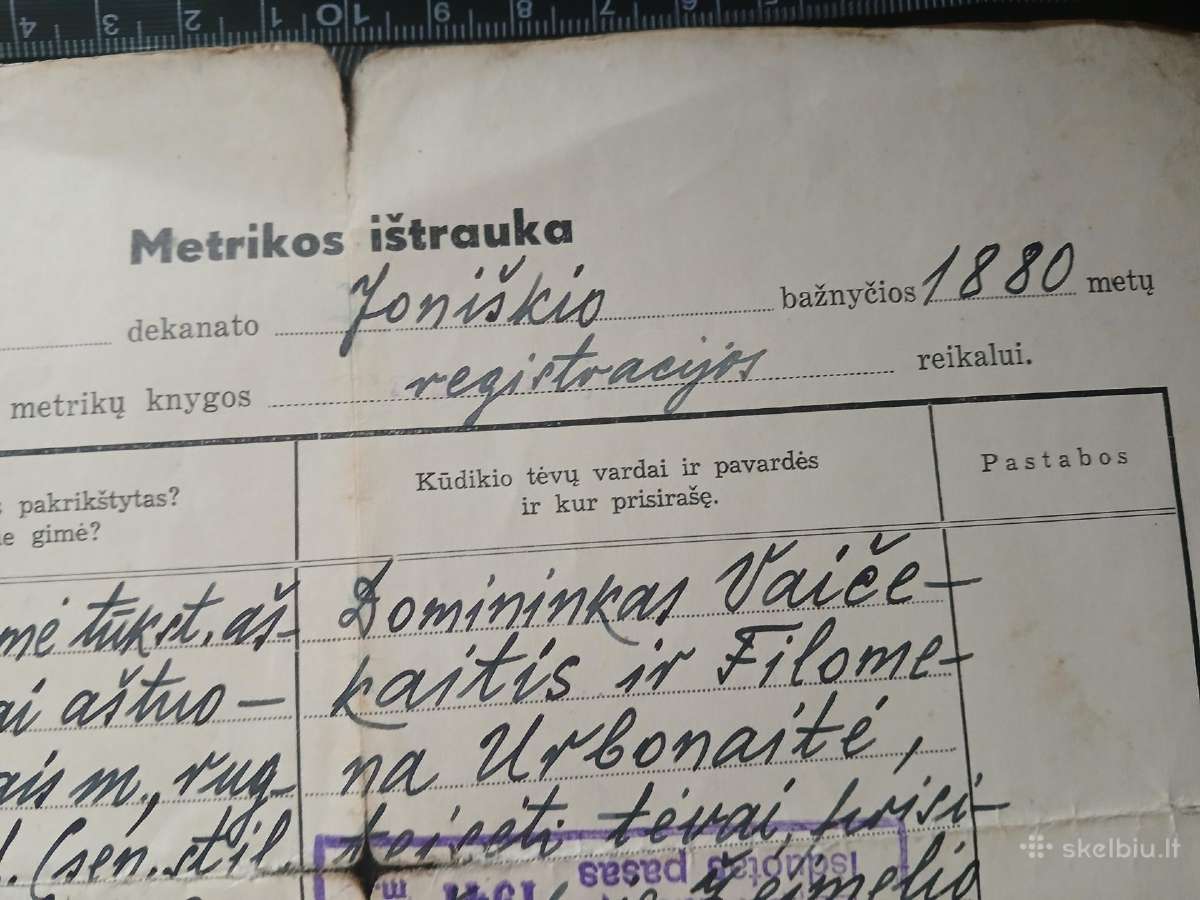 4 3 2 1 10 9 8 7 6 5
Metrikos ištrauka
dekanato Joniškio bažnyčios 1880 metų
metrikų knygos registracijos reikalui.
pakrikštytas?
gimė?
Kūdikio tėvų vardai ir pavardės
ir kur prisirašę.
Pastabos
mė tūkst. aš-
ai aštuo-
ais m., rug-
(sen. stil.
Domininkas Vaiče-
kaitis ir Filome-
na Urbonaitė,
teisėti tėvai, prisi-
Žeimelio
išduotas pasas
m.
skelbiu.lt